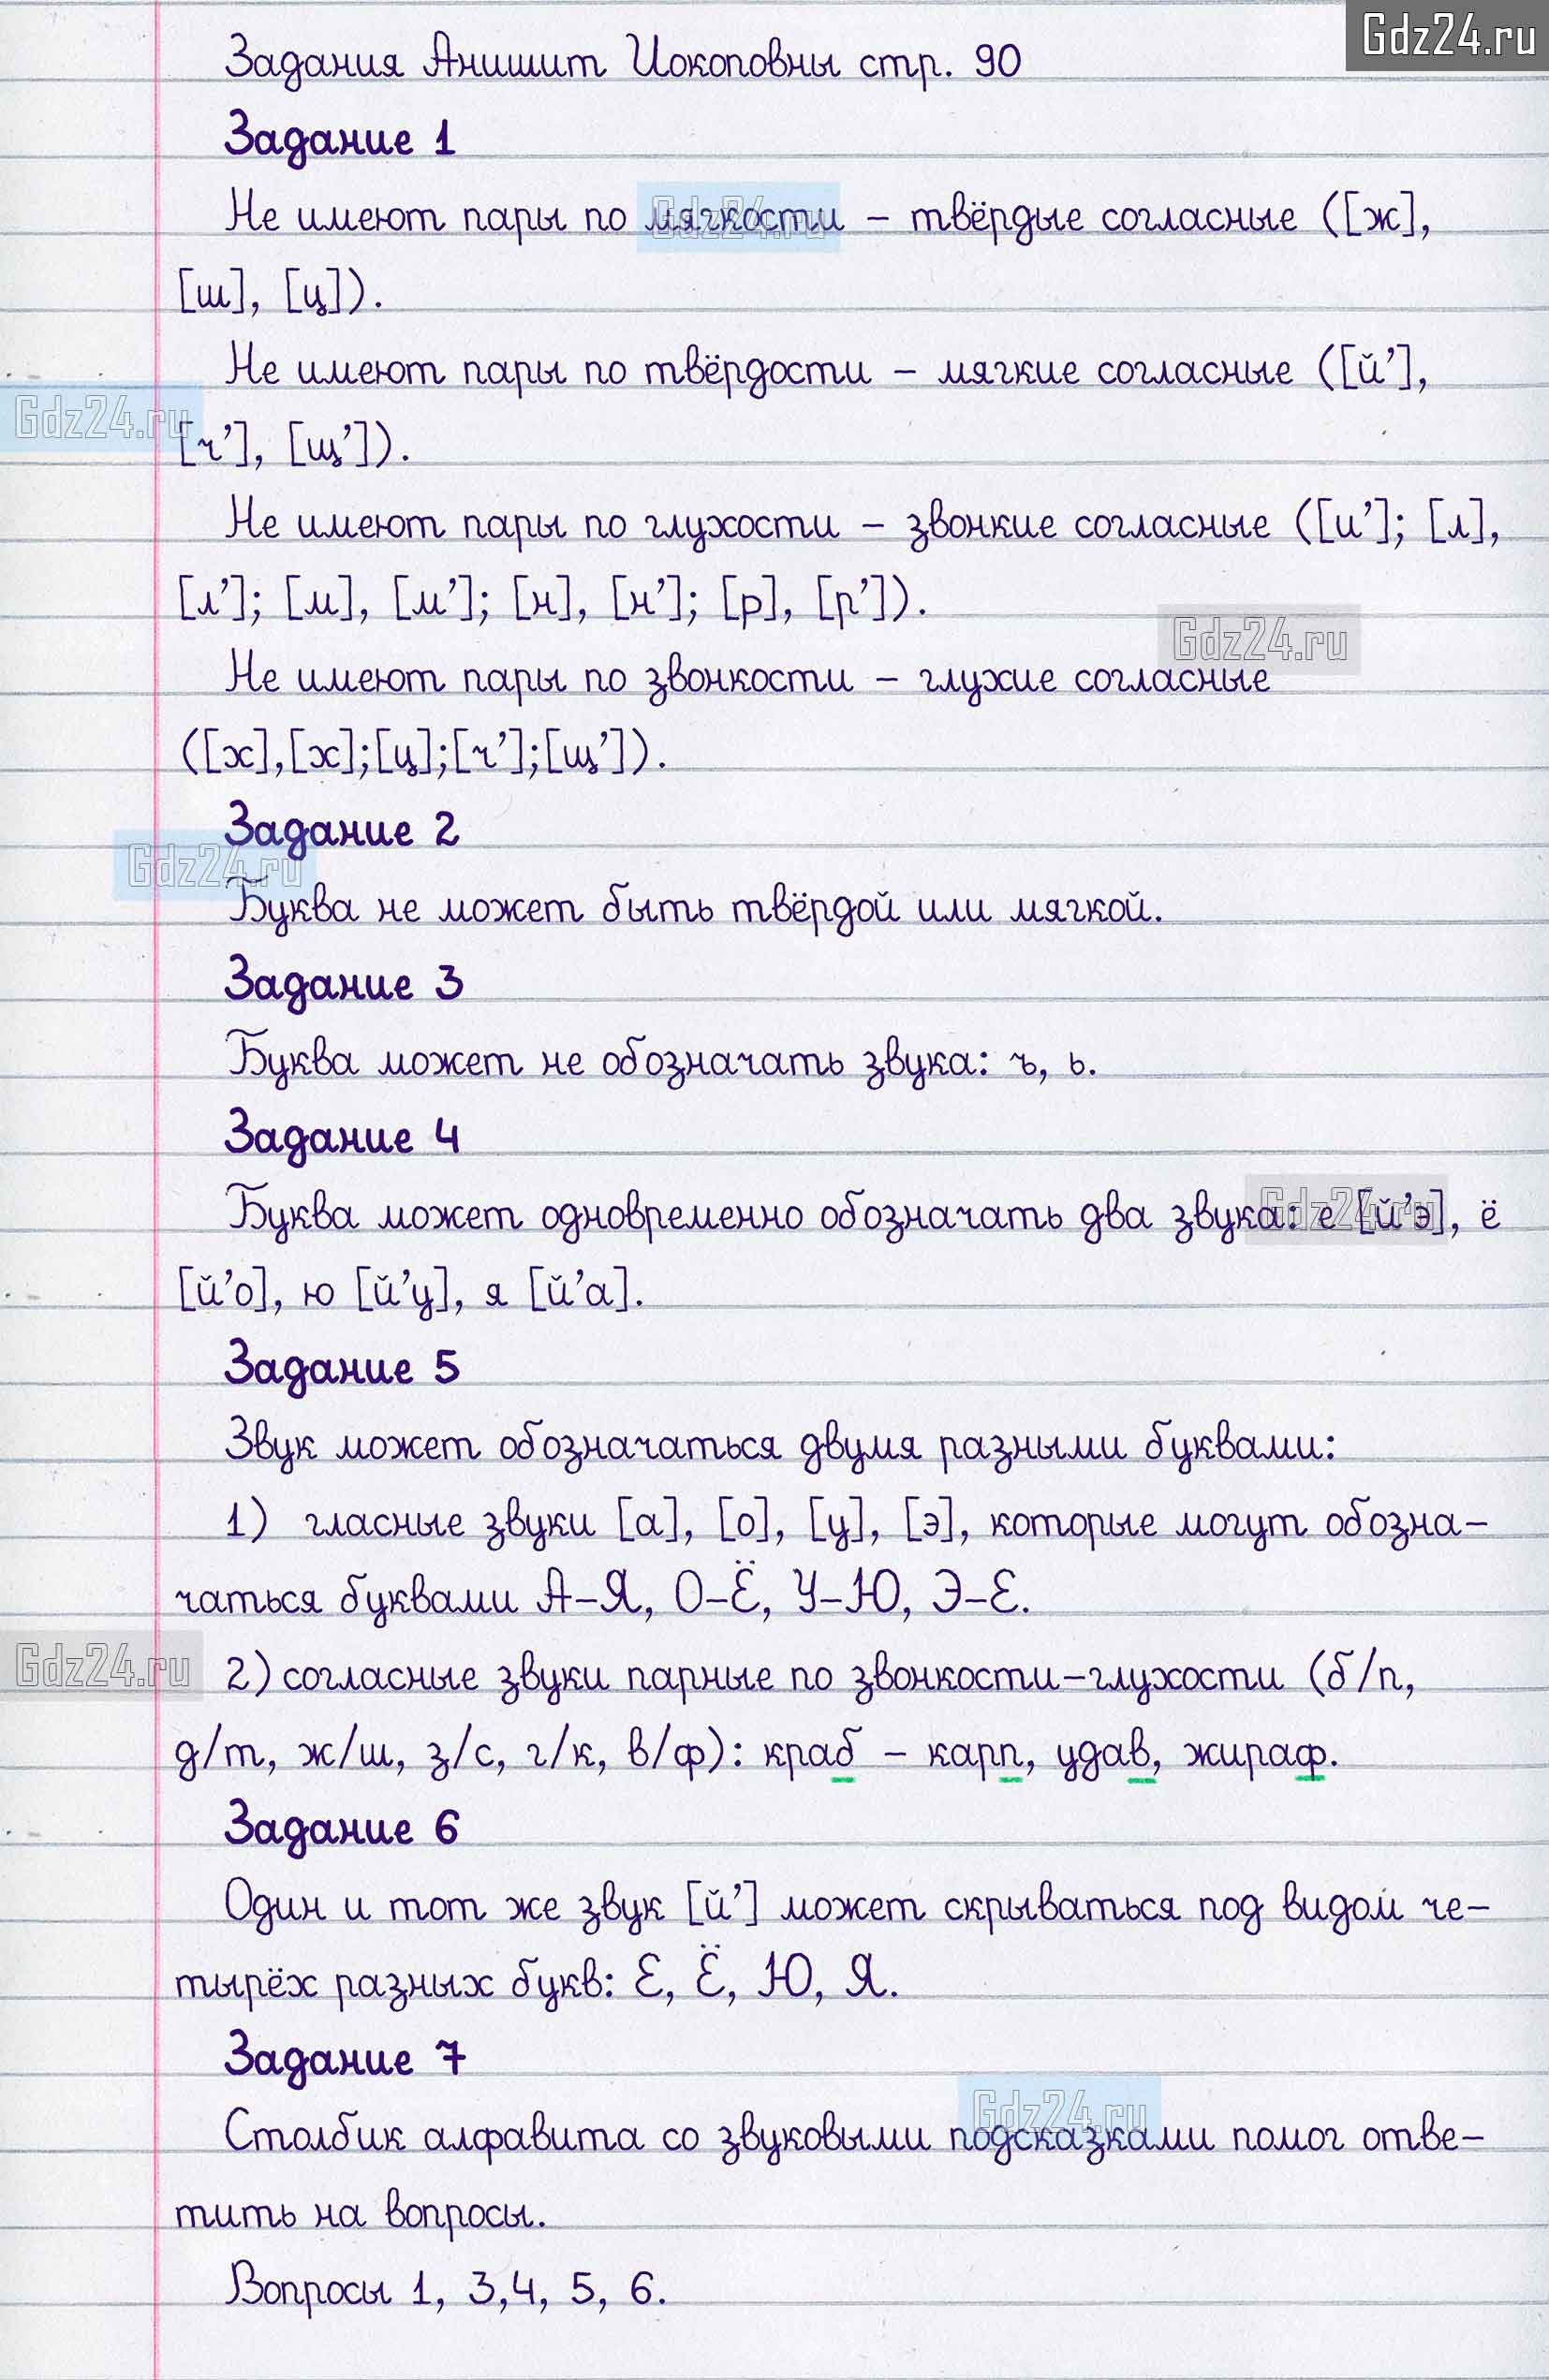 Gdz24.ru
Задания Анишит Йокоповны стр. 90
Задание 1
Не имеют пары по мягкости – твёрдые согласные ([ж],
[ш], [ц]).
Не имеют пары по твёрдости – мягкие согласные ([й’],
[ч’], [щ’]).
Не имеют пары по глухости – звонкие согласные ([и’]; [л],
[л’]; [м], [м’]; [н], [н’]; [р], [р’]).
Не имеют пары по звонкости – глухие согласные
([х],[х];[ц];[ч’];[щ’]).
Задание 2
Буква не может быть твёрдой или мягкой.
Задание 3
Буква может не обозначать звука: ъ, ь.
Задание 4
Буква может одновременно обозначать два звука: е [й’э], ё
[й’о], ю [й’у], я [й’а].
Задание 5
Звук может обозначаться двумя разными буквами:
1) гласные звуки [а], [о], [у], [э], которые могут обозна–
чаться буквами А–Я, О–Ё, У–Ю, Э–Е.
2) согласные звуки парные по звонкости–глухости (б/п,
д/т, ж/ш, з/с, г/к, в/ф): краб – карп, удав, жираф.
Задание 6
Один и тот же звук [й’] может скрываться под видом че–
тырёх разных букв: Е, Ё, Ю, Я.
Задание 7
Столбик алфавита со звуковыми подсказками помог отве–
тить на вопросы.
Вопросы 1, 3,4, 5, 6.
Gdz24.ru
Gdz24.ru
Gdz24.ru
Gdz24.ru
Gdz24.ru
Gdz24.ru
Gdz24.ru